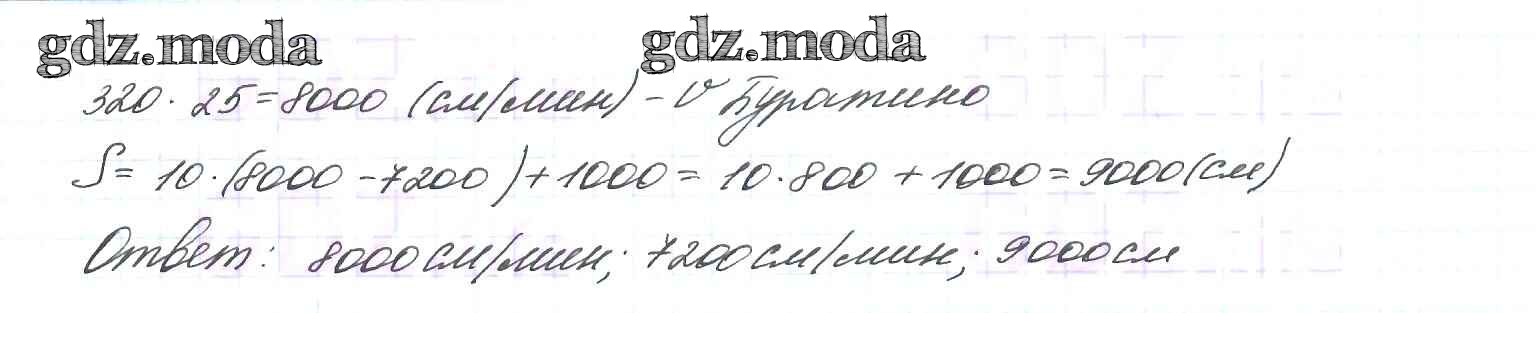 gdz.moda gdz.moda
320 · 25 = 8000 (см/мин) - v Буратино
S = 10 · (8000 - 7200) + 1000 = 10 · 800 + 1000 = 9000 (см)
Ответ: 8000 см/мин; 7200 см/мин; 9000 см